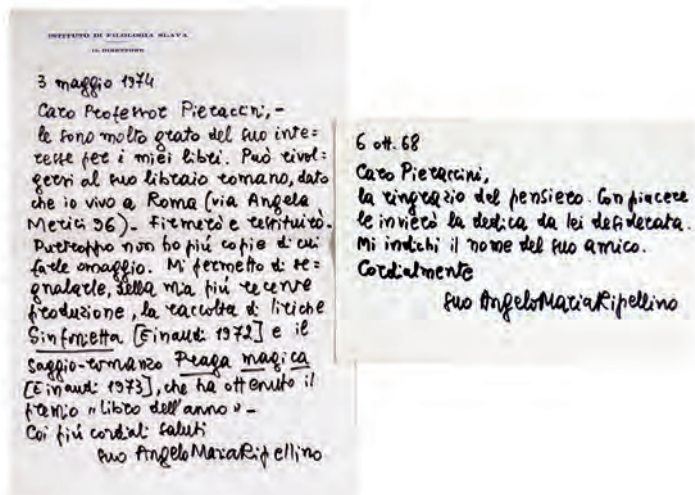 ISTITUTO DI FILOLOGIA SLAVA
IL DIRETTORE
3 maggio 1974
Caro Professor Pieraccini,-
le sono molto grato del suo inte=
resse per i miei libri. Può rivol=
gersi al suo libraio romano, dato
che io vivo a Roma (via Angela
Merici 96). Firmerò e restituirò.
Purtroppo non ho più copie di cui
farle omaggio. Mi permetto di se=
gnalarle, della mia più recente
produzione, la raccolta di liriche
Sinfonietta [Einaudi 1972] e il
saggio-romanzo Praga magica
[Einaudi 1973], che ha ottenuto il
premio «libro dell'anno» -
Coi più cordiali saluti
suo AngeloMariaRipellino
6 ott. 68
Caro Pieraccini,
la ringrazio del pensiero. Con piacere
le invierò la dedica da lei desiderata.
Mi indichi il nome del suo amico.
Cordialmente
suo AngeloMariaRipellino